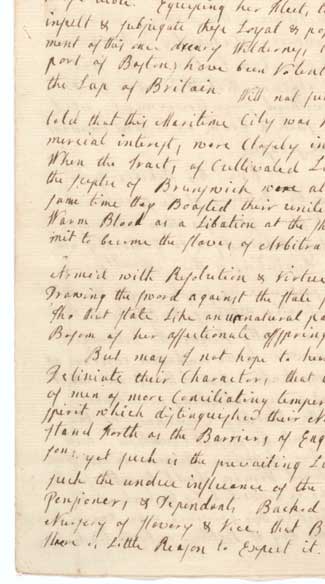 Equiping her Fleet, to
insult & subjugate these Loyal & po
ment of this once dreary Wilderness, t
port of Boston) have been Violent
the Lap of Britain
Will not
told that this Maritime City was
mercial interest, were Closely in
When the Tract, of Cultivated L
the scepter of Brunswick were al
same time they Boasted their
Warm Blood as a Libation at the Sh
mit to become the slaves of Arbitra
Armed with Resolution & Virtue
Drawing the sword against the State
Tho that state Like an unnatural pa
Bosom of her affectionate offspring
But may I not hope to hea
Deliniate their Characters that
of men of more Conciliating temper
spirit which distinguishes their
stand forth as the Barriers of Eng
sons, yet such is the prevailing L
such the undue influence of the
Pensioners, & Dependants Backed
Nursery of Slavery & Vice. that B
there is Little Reason to Expect it.